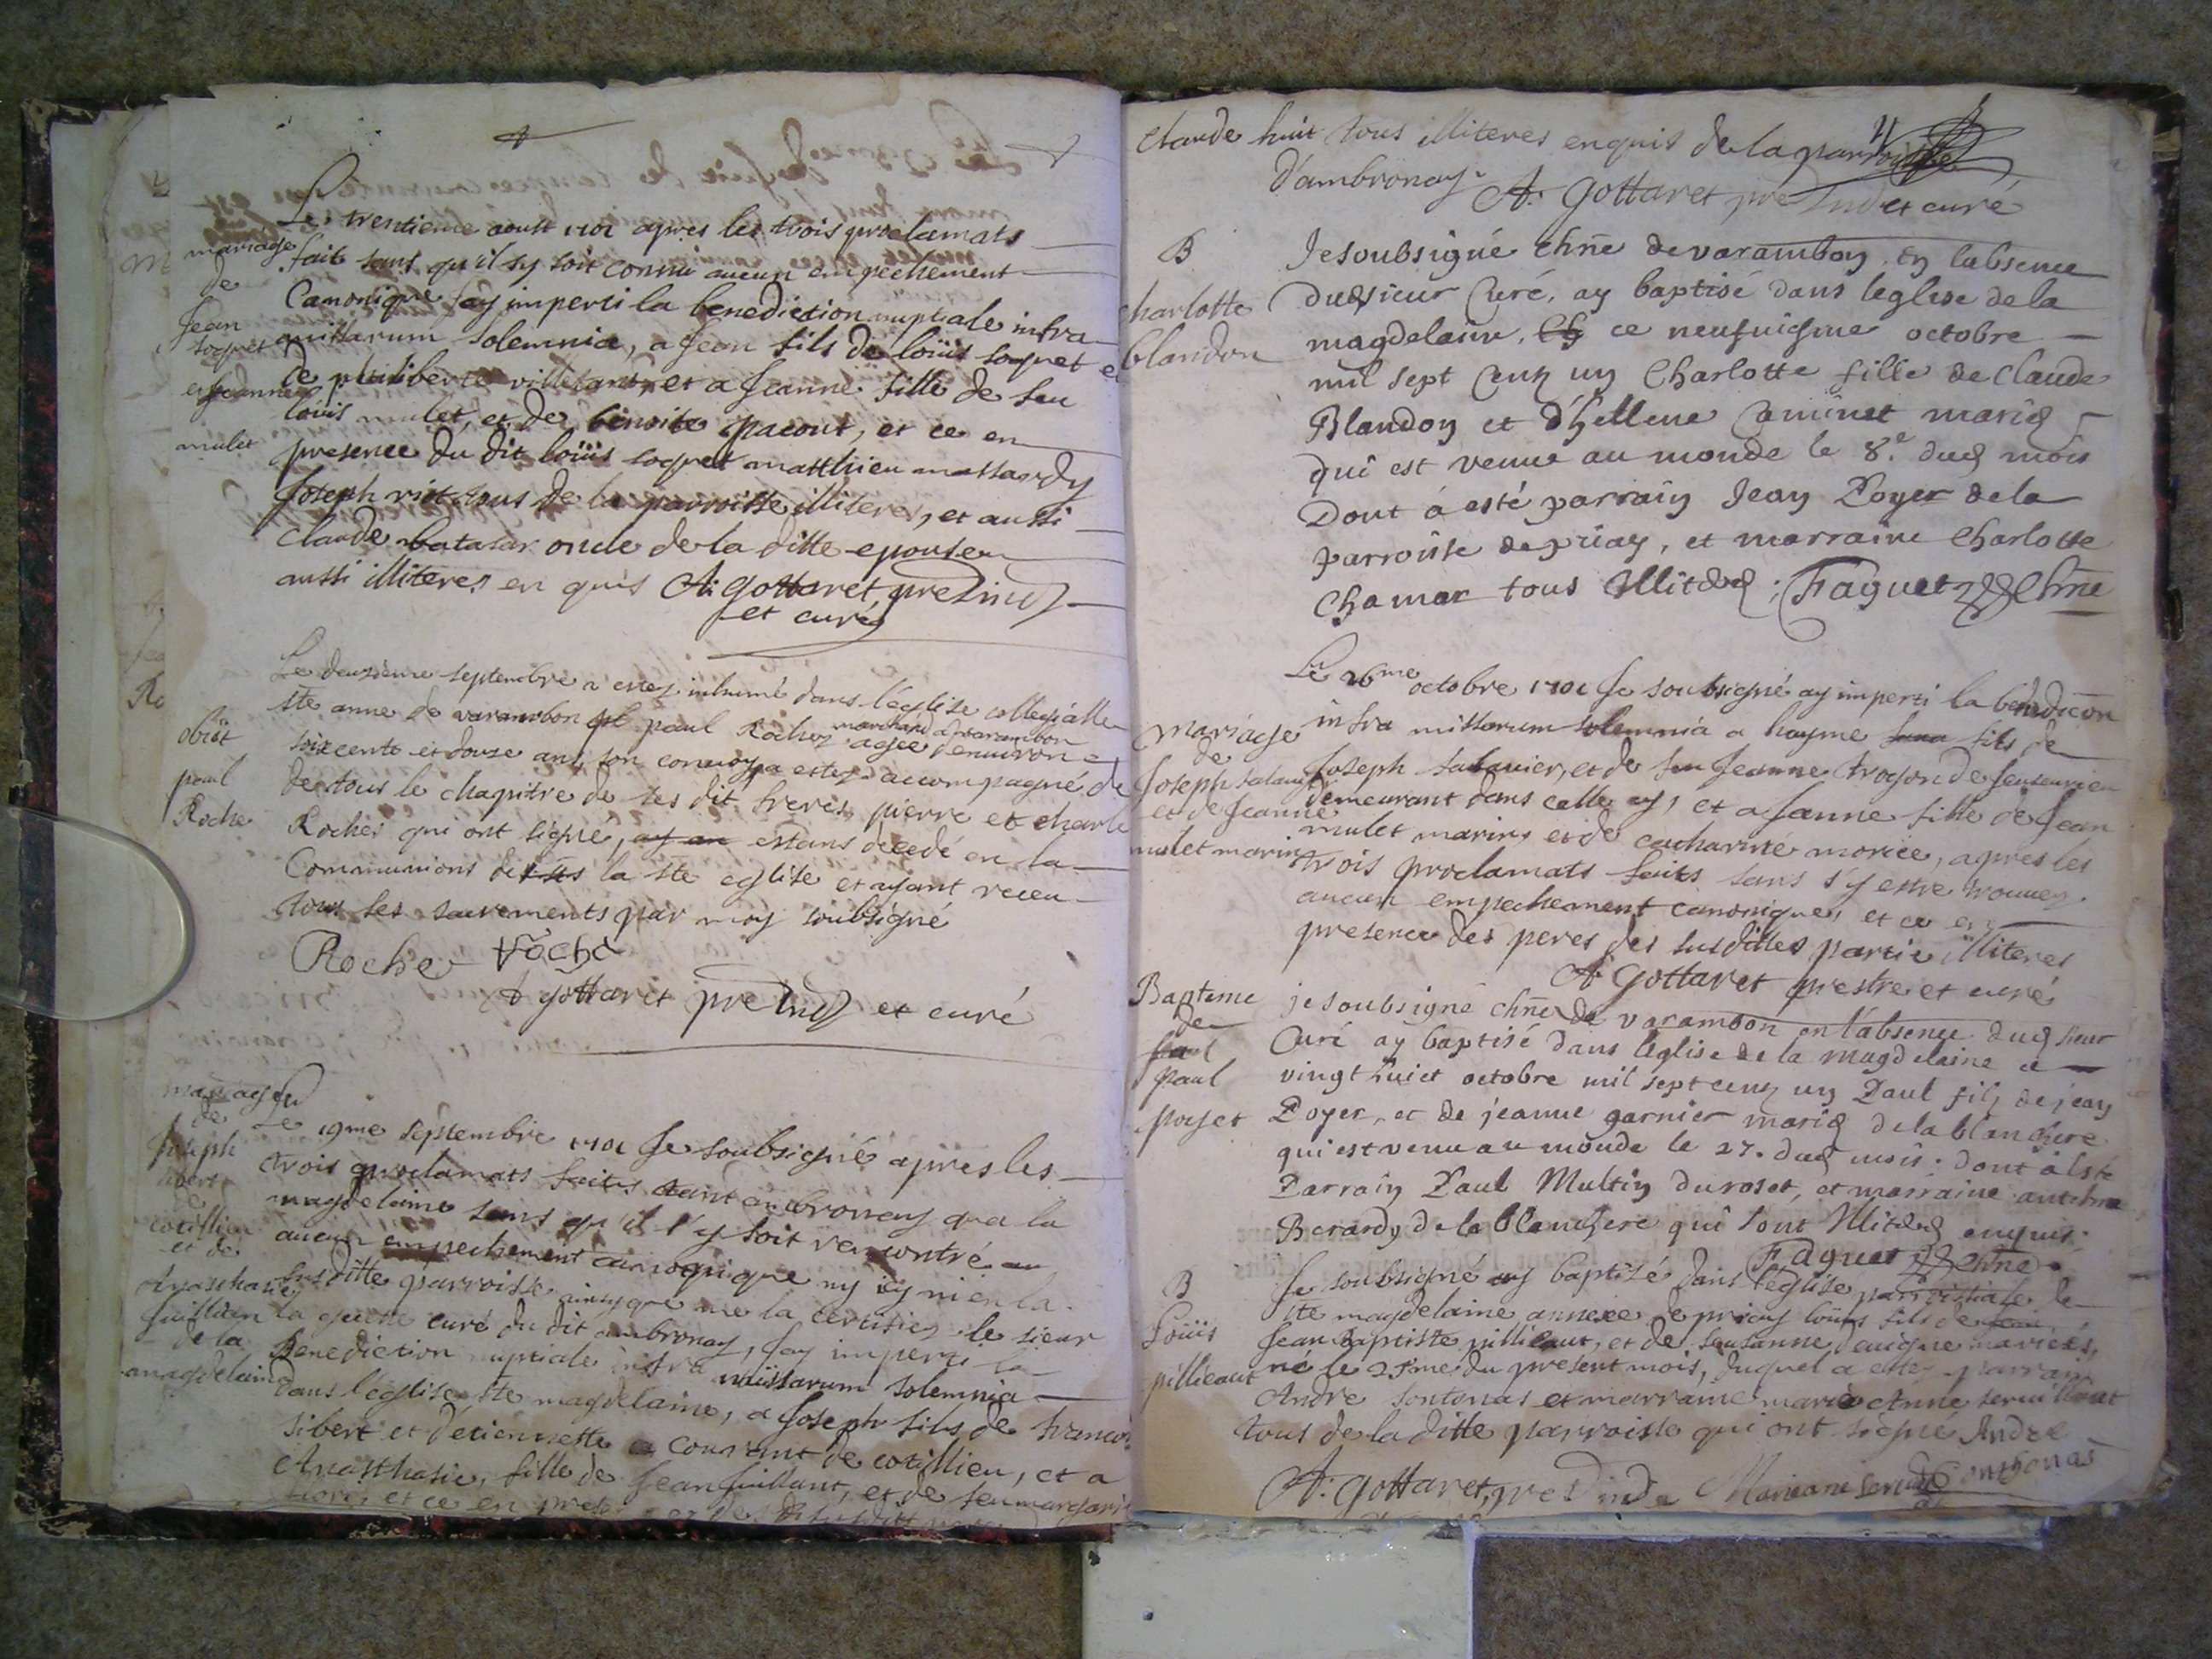 Le trentieme aoust 1701 apres les trois proclamats
mariage fait sans qu'il sy soit connu aucun empechement
de Canonique jay imperti la benediction nuptiale infra
Jean soquet missarum solemnia, a Jean fils de loüis soquet et
et jeanne de philiberte et a Jeanne fille de feu
mulet loüis mulet, et de benoite pacout, et ce en
presence du dit loüis soquet matthieu massardy
Joseph tous de la parroisse illiteres, et aussi
Claude batasar oncle de la ditte epouse
aussi illiteres en quis A: Gottaret pre
et curé
Le deuxieme septembre a estez inhumé dans l'église collegialle
ste anne de varambon paul Roche marchand a varambon agee d'environ
obiit
paul
Roche
soixcente et douze ans, son convoy a estez accompagné de
de tous le chapitre de ses dit freres pierre et charle
Roche qui ont signé, estans decedé en la
Communions de la ste eglise et ayant receu
tous ses sacrements par moy soubsigné
Roche Roche
A gottaret pre et curé
mariage
de
Joseph
de
cotillieu
et de
Anasthasie
Juillien
de la
magdelaine
Le 19me septembre 1701 Je soubsigné apres les
trois proclamats faits tant ambronay qua la
magdelaine sans qu'il s'y soit rencontré
aucun empechement canonique ny icy ni en la
susditte parroisse ainsy que me la certifiez le sieur
curé du dit ambronay, Jay imperti la
Benediction nuptiale infra missarum solemnia
dans l'église ste magdelaine, a Joseph fils de francois
sibert et d'etiennette courant de cotillieu, et a
Anasthasie, fille de Jean Juillant, et de feu
et ce en
Claude huit tous illiteres enquis de la parroisse
d'ambronay. A: Gottaret pre et curé
B
charlotte
blandon
Je soubsigné chne de varambon en labsence
dud sieur Curé, ay baptisé dans leglise de la
magdelaine, ce neufuiesme octobre
mil sept Cent un Charlotte fille de Claude
Blandon et d'hellene Caminet mariés
qui est venue au monde le 8.e dud mois
Dont a esté parrain Jean Poyer de la
parroisse de priay, et marraine Charlotte
Chamar tous illiterés; Faguet Chne
Le 26me octobre 1701 Je soubsigné ay imperti la benedicõn
mariage
de
Joseph
et de Jeanne
mulet marin
infra missarum solemnia a hayme fils de
Joseph salavier, et de feu Jeanne
demeurant dans celle cy, et a Janne fille de Jean
mulet marin, et de catharine morice, apres les
trois proclamats faits sans s'y estre trouvez
aucun empechement canonique, et ce en
presence des peres des susdittes partie illiteres
A Gottaret prestre et curé
Bapteme
de
paul
poyet
je soubsigné chne de varambon en l'absence dud sieur
Curé ay baptisé dans leglise de la magdelaine ce
vingt huict octobre mil sept cent un Paul fils de jean
Poyer, et de jeanne garnier mariés de la blanchere
qui est venu au monde le 27. dud mois. dont a esté
Parrain Paul Multin du roset, et marraine
Berardy de la blanchere qui sont illiterés enquis.
Faguet Chne
B
Loüis
pillicaut
Je soubsigné ay baptisé dans l'église parroissiale de
ste magdelaine annexe de priay loüis fils de
Jean Baptiste pillicaut, et de seusanne mariés,
né le 25me du present mois, duquel a estez parrain
André fontonas et marraine marie Anne
tous de la ditte parroisse qui ont signé André
A: Gottaret, pre Marieane